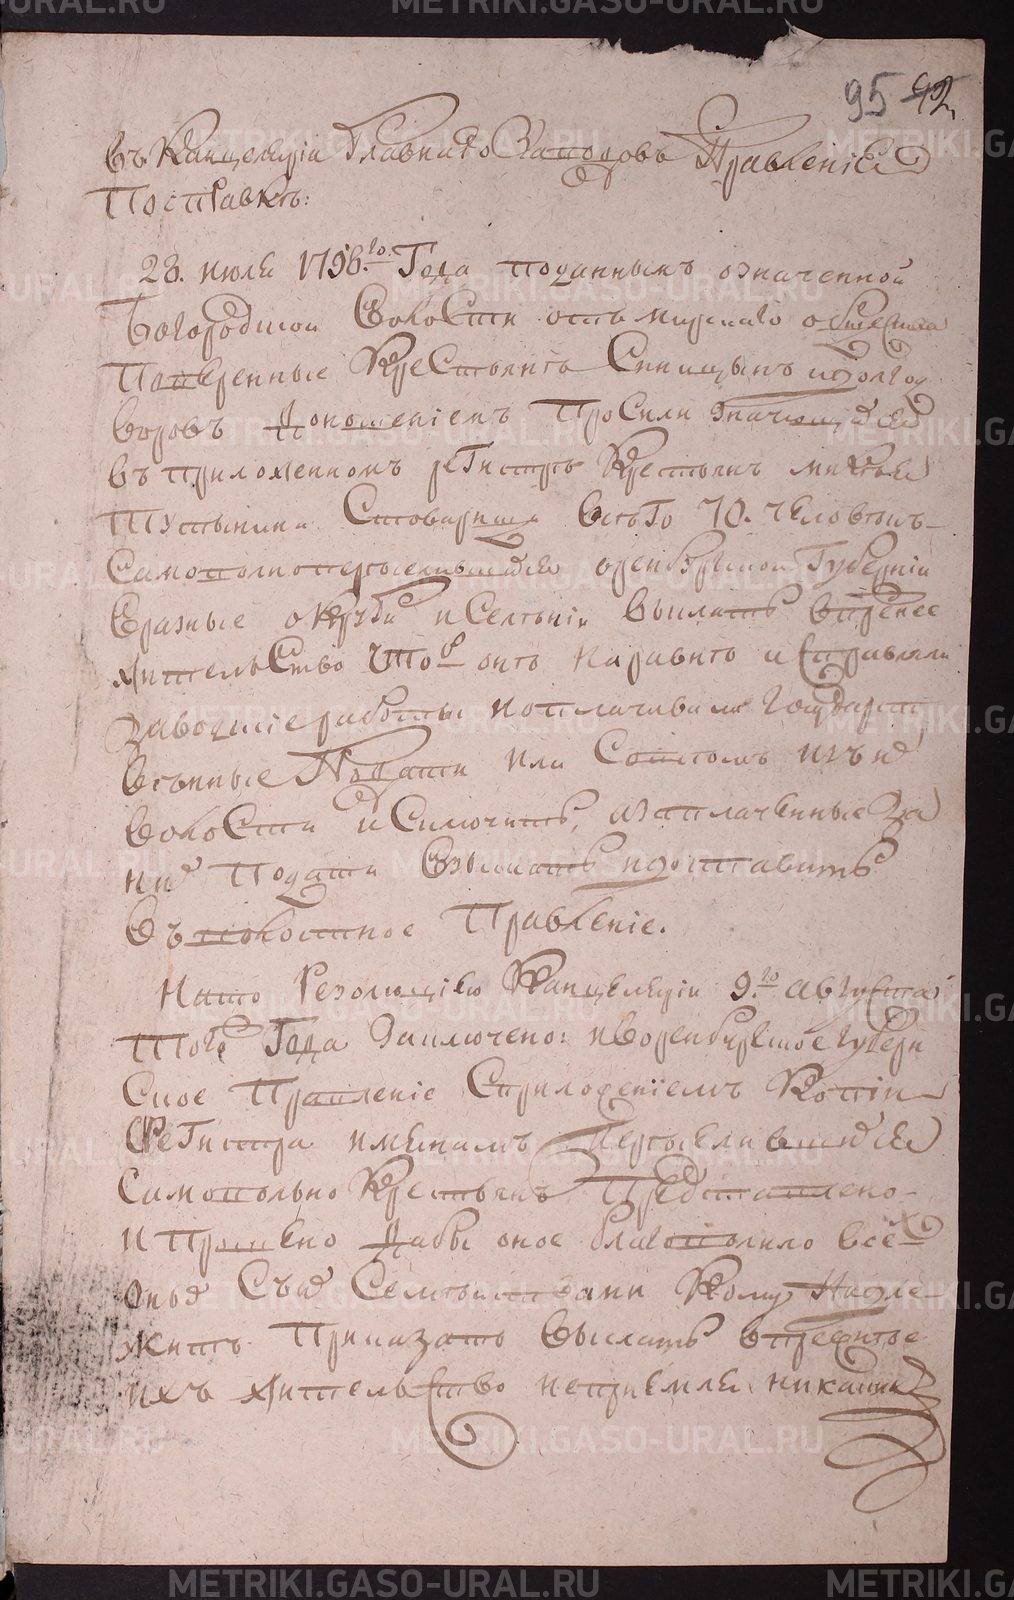 METRIKI.GASO-URAL.RU
95 92
Въ Канцелярiи Главнаго Заводовъ Правленiя
По справкѣ:
28. июля 1798.го Года поданнымъ означенной
Богородской волости отъ мирскаго общества
Поверенные Крестьянъ Синицынъ
воровъ доношенiемъ просили значущихся
въ приложенномъ регистрѣ Крестьянъ
Стоварищи всего 70. человѣкъ
Самовольно переселившихся оренбурской Губернiи
вразные округи и Селенiи выслать впрежнее
жительство чтоб они наравнѣ исправляли
заводскiе работы и оплачивали Государст
венные Подати или совсемъ изъ
волости исключить, а заплаченные за
них Подати взыскать и доставить
въ волостное Правленiе.
На что резолюцiею Канцелярiи 9.го августа
того Года Заключено: и воренбурское губерн
ское Правленiе Сприложенiемъ Копiи
Регистра имянамъ переселившихся
Самовольно Крестьянъ Представлено
и Прошено дабы оное благоволило всех
оных Съ их Семействами Кому надле
житъ Приказать выслать впрежнее
ихъ жительство неприемля никаких